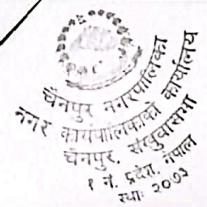 चैनपुर नगरपालिका
नगर कार्यपालिकाको कार्यालय
चैनपुर, संखुवासभा
१ नं. प्रदेश, नेपाल
स्था: २०७३